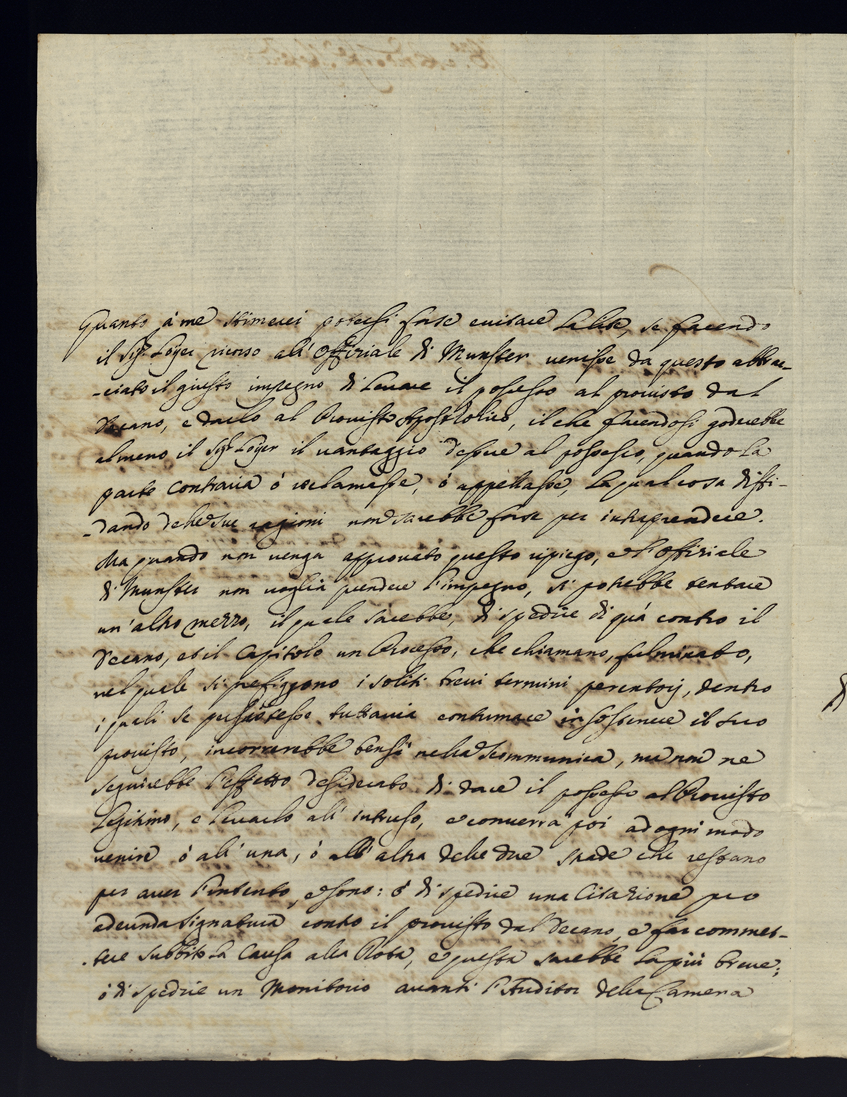 Quanto à me stimerei potersi forse evitare la lite, se facendo
il Sigr Loyer ricorso all'Offiziale di Munster venisse da questo abbrac-
-ciato il giusto impegno di levare il possesso al provisto dal
Decano, e darlo al Provisto Apostolico, il che facendosi goderebbe
almeno il Sigr Loyer il vantaggio d'essere al possesso, quando la
parte contraria ò reclamasse, ò appellasse, la qual cosa diffi-
-dando delle sue ragioni non sarebbe forse per intraprendere.
Ma quando non venga approvato questo ripiego, e l'Offiziale
di Munster non voglia prendere l'impegno, si potrebbe tentare
un'altro mezzo, il quale sarebbe, di spedire di quà contro il
Decano, et il Capitolo un Processo, che chiamano, fulminato,
nel quale si prefiggono i soliti trevi termini perentorij, dentro
i quali se persistesse tuttavia contumace in sostenere il suo
provisto, incorrerebbe bensì nella Scommunica, mà non ne
seguirebbe l'effetto desiderato di dare il possesso al Provisto
Legitimo, e levarlo all'intruso, e converrà poi ad ogni modo
venire ò all'una, ò all'altra delle due strade che restano
per aver l'intento, e sono: ò di spedire una Citazione pro
adeunda Signatura contro il provisto dal Decano, e far commet-
-tere subbito la Causa alla Rota, e questa sarebbe la più breve;
ò di spedire un Monitorio avanti l'Auditor della Camera